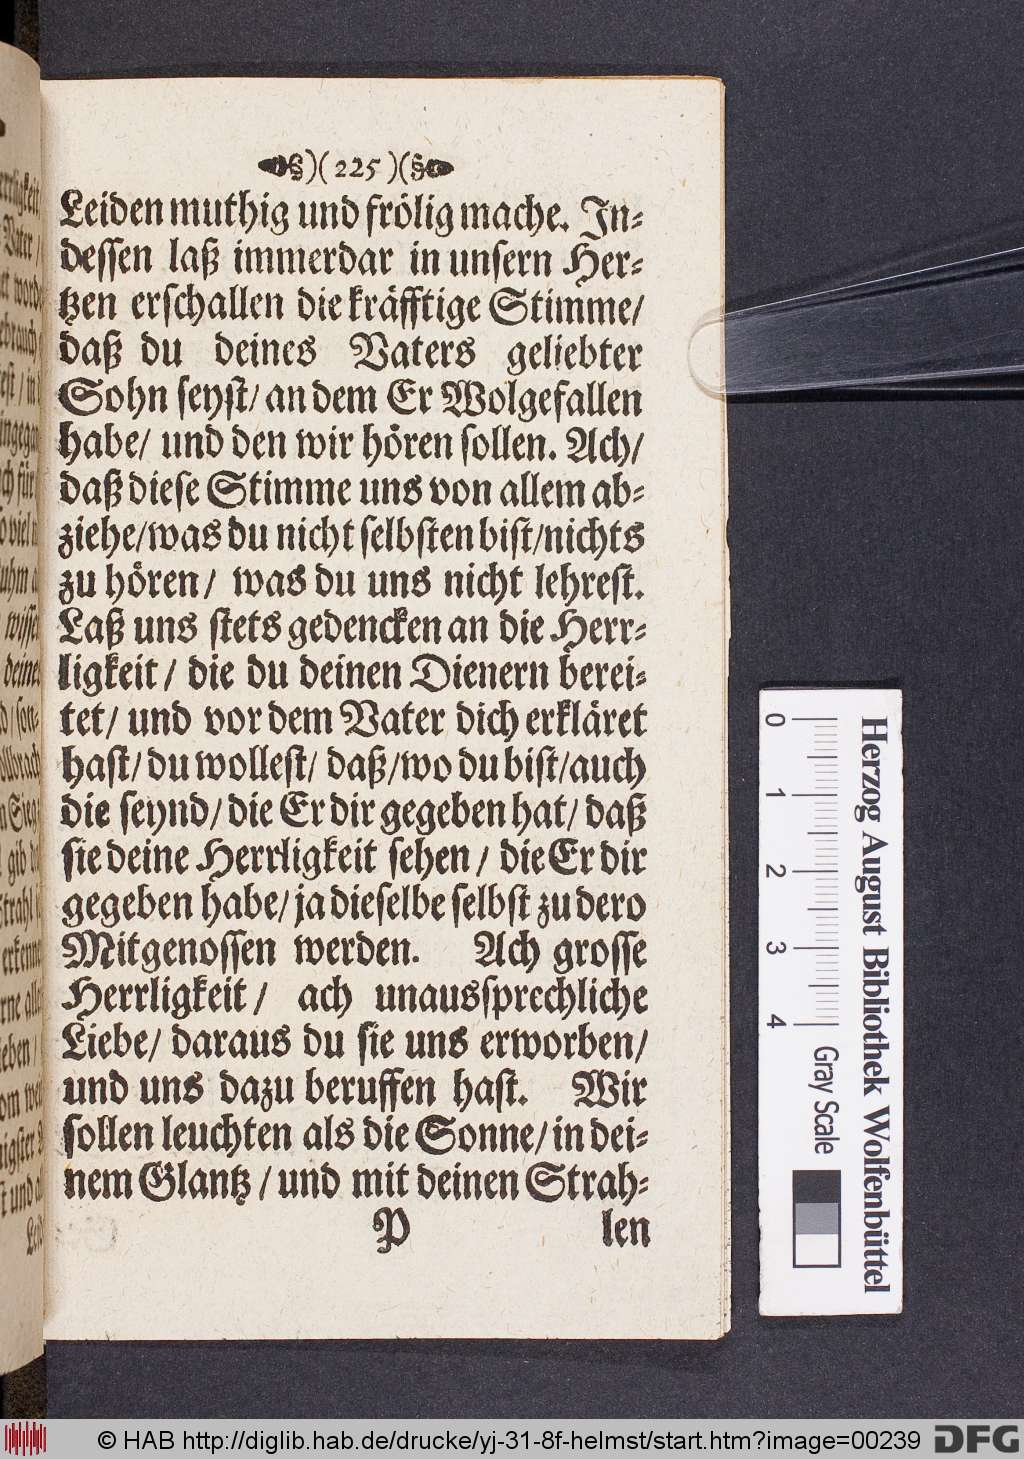 §)( 225 )(§
Leiden muthig und frölig mache. In-
dessen laß immerdar in unsern Her-
tzen erschallen die kräfftige Stimme/
daß du deines Vaters geliebter
Sohn seyst/ an dem Er Wolgefallen
habe/ und den wir hören sollen. Ach/
daß diese Stimme uns von allem ab-
ziehe/ was du nicht selbsten bist/ nichts
zu hören/ was du uns nicht lehrest.
Laß uns stets gedencken an die Herr-
ligkeit/ die du deinen Dienern berei-
tet/ und vor dem Vater dich erkläret
hast/ du wollest/ daß/ wo du bist/ auch
die seynd/ die Er dir gegeben hat/ daß
sie deine Herrligkeit sehen/ die Er dir
gegeben habe/ ja dieselbe selbst zu dero
Mitgenossen werden. Ach grosse
Herrligkeit/ ach unaussprechliche
Liebe/ daraus du sie uns erworben/
und uns dazu beruffen hast. Wir
sollen leuchten als die Sonne/ in dei-
nem Glantz/ und mit deinen Strah-
P len
Herzog August Bibliothek Wolfenbüttel
0 1 2 3 4 Gray Scale
© HAB http://diglib.hab.de/drucke/yj-31-8f-helmst/start.htm?image=00239
DFG